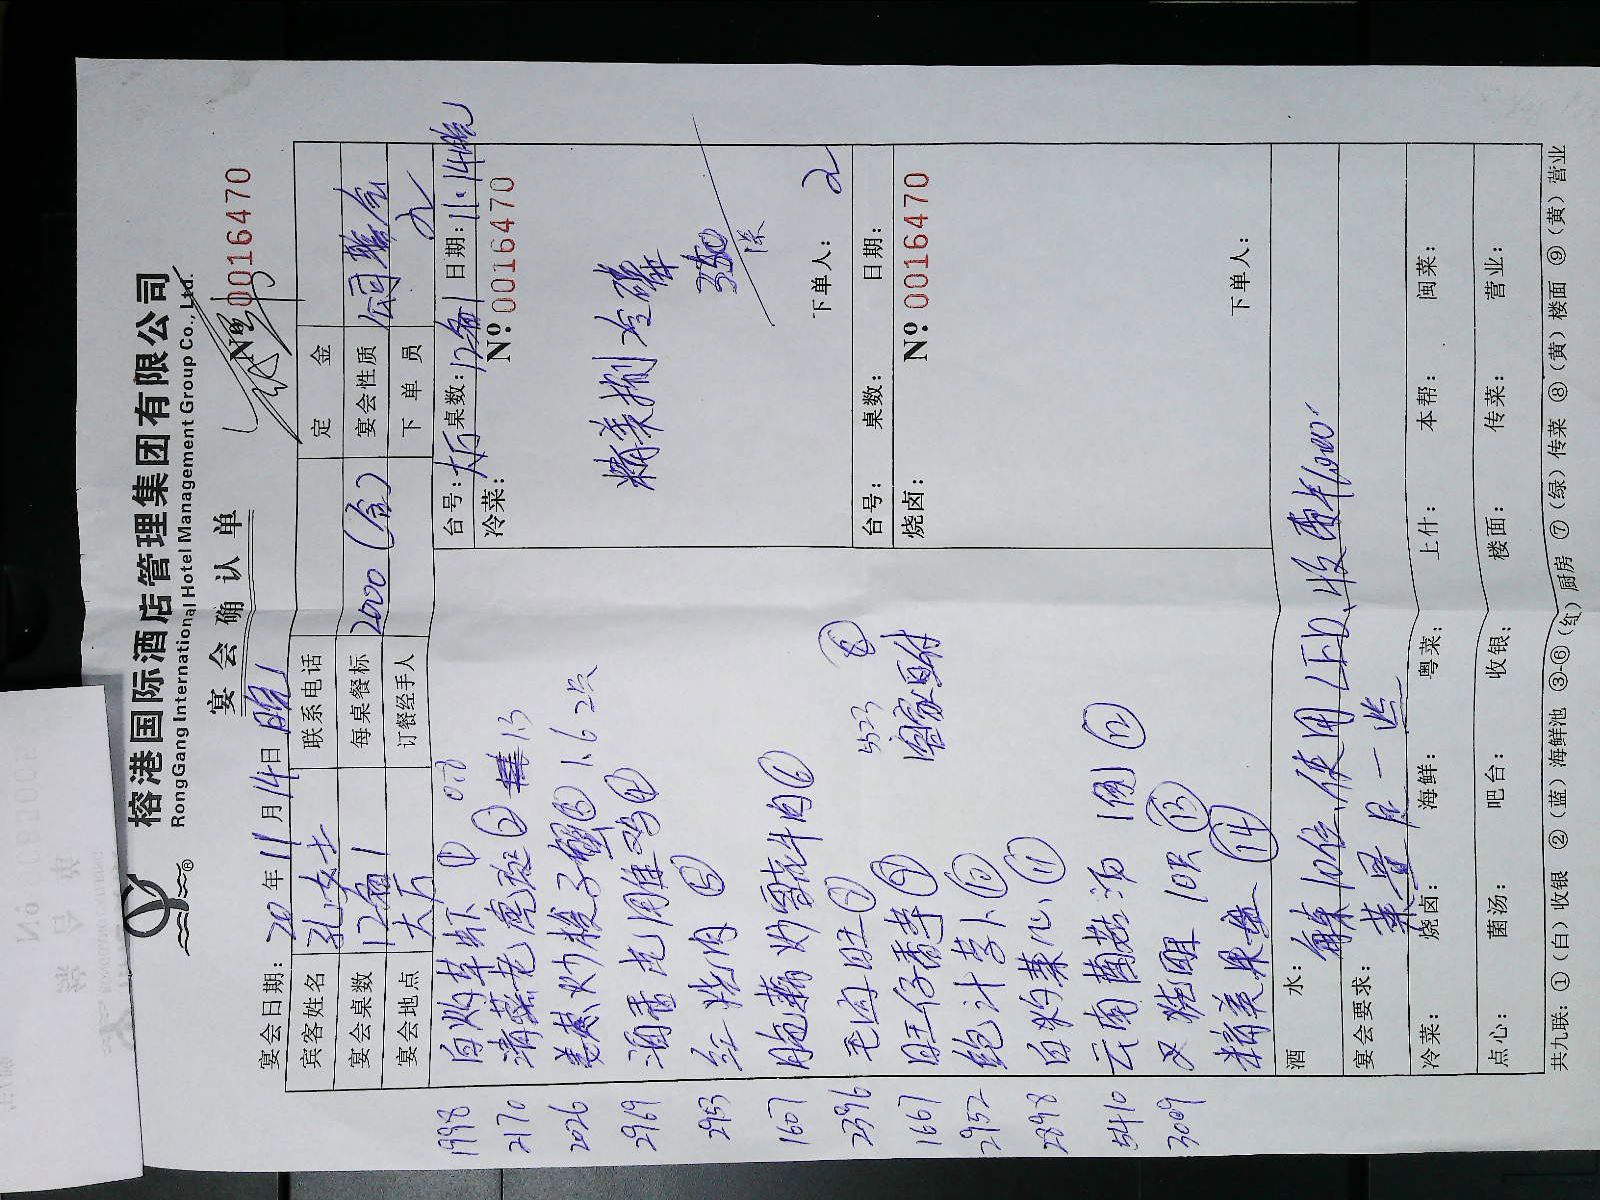 榕港国际酒店管理集团有限公司
RongGang International Hotel Management Group Co., Ltd.
宴会确认单
№ 0016470
宴会日期: 20 年 11 月 14 日 晚
宾客姓名 孔女士 联系电话 定金
宴会桌数 12备1 每桌餐标 2000 宴会性质 公司聚会
宴会地点 大厅 订餐经手人 下单员
台号: 大厅 桌数: 12备1 日期: 11.14晚
冷菜: № 0016470
精美捌冷碟
350
下单人: 2
台号: 桌数: 日期:
烧卤: № 0016470
下单人:
1998 白灼草虾 ①
2170 清蒸老虎斑 ② 1.3
2026 姜葱炒梭子蟹 ③ 1.6 2只
2969 ④
2953 红烧肉 ⑤
1607 炒雪花牛肉 ⑥
2396 毛血旺 ⑦ 5523 ⑧
1667 旺仔香芋 ⑨ 自付
2952 鲍汁萝卜 ⑩
2898 白灼菜心 ⑪
5410 云南菌菇汤 1例 ⑫
3009 叉烧酥 10只 ⑬
精美果盘 ⑭
酒水:
宴会要求: 每桌10位、使用LED、收费1000
菜量足一些
冷菜: 烧卤: 海鲜: 粤菜: 上什: 本帮: 闽菜:
点心: 菌汤: 吧台: 收银: 楼面: 传菜: 营业:
共九联: ①(白)收银 ②(蓝)海鲜池 ③-⑥(红)厨房 ⑦(绿)传菜 ⑧(黄)楼面 ⑨(黄)营业